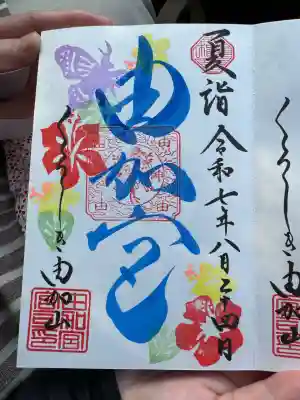 夏詣 令和七年八月二十四日
由加宮
くらしき由加山
くらしき由加山